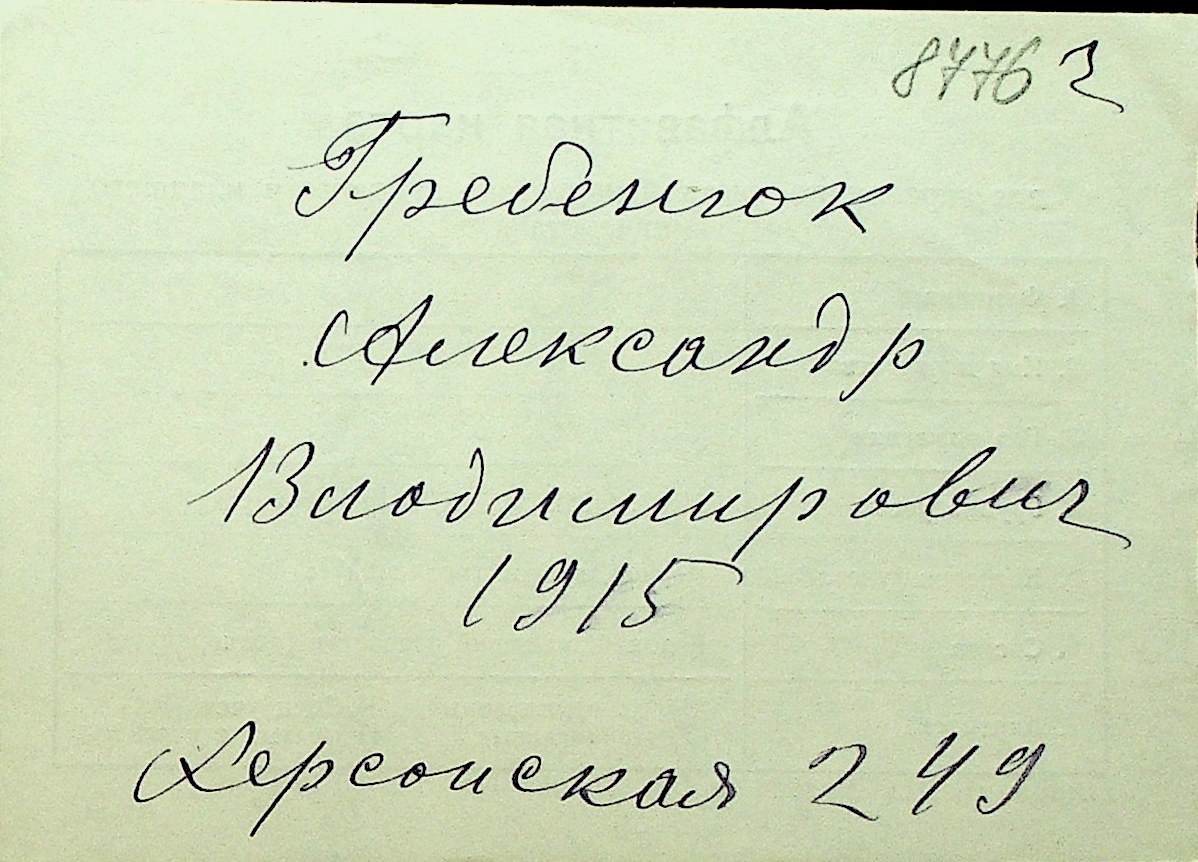 8776 2
Гребенюк
Александр
Владимирович
1915
Херсонская 249